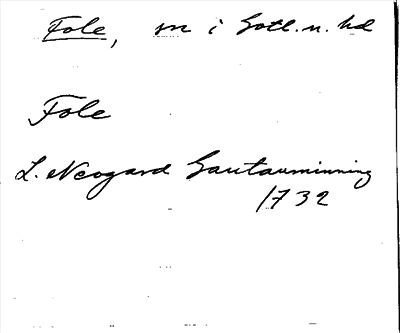 Fole, sn i Gotl. n. hd
Fole
L. Neogard Gautauminning
1732